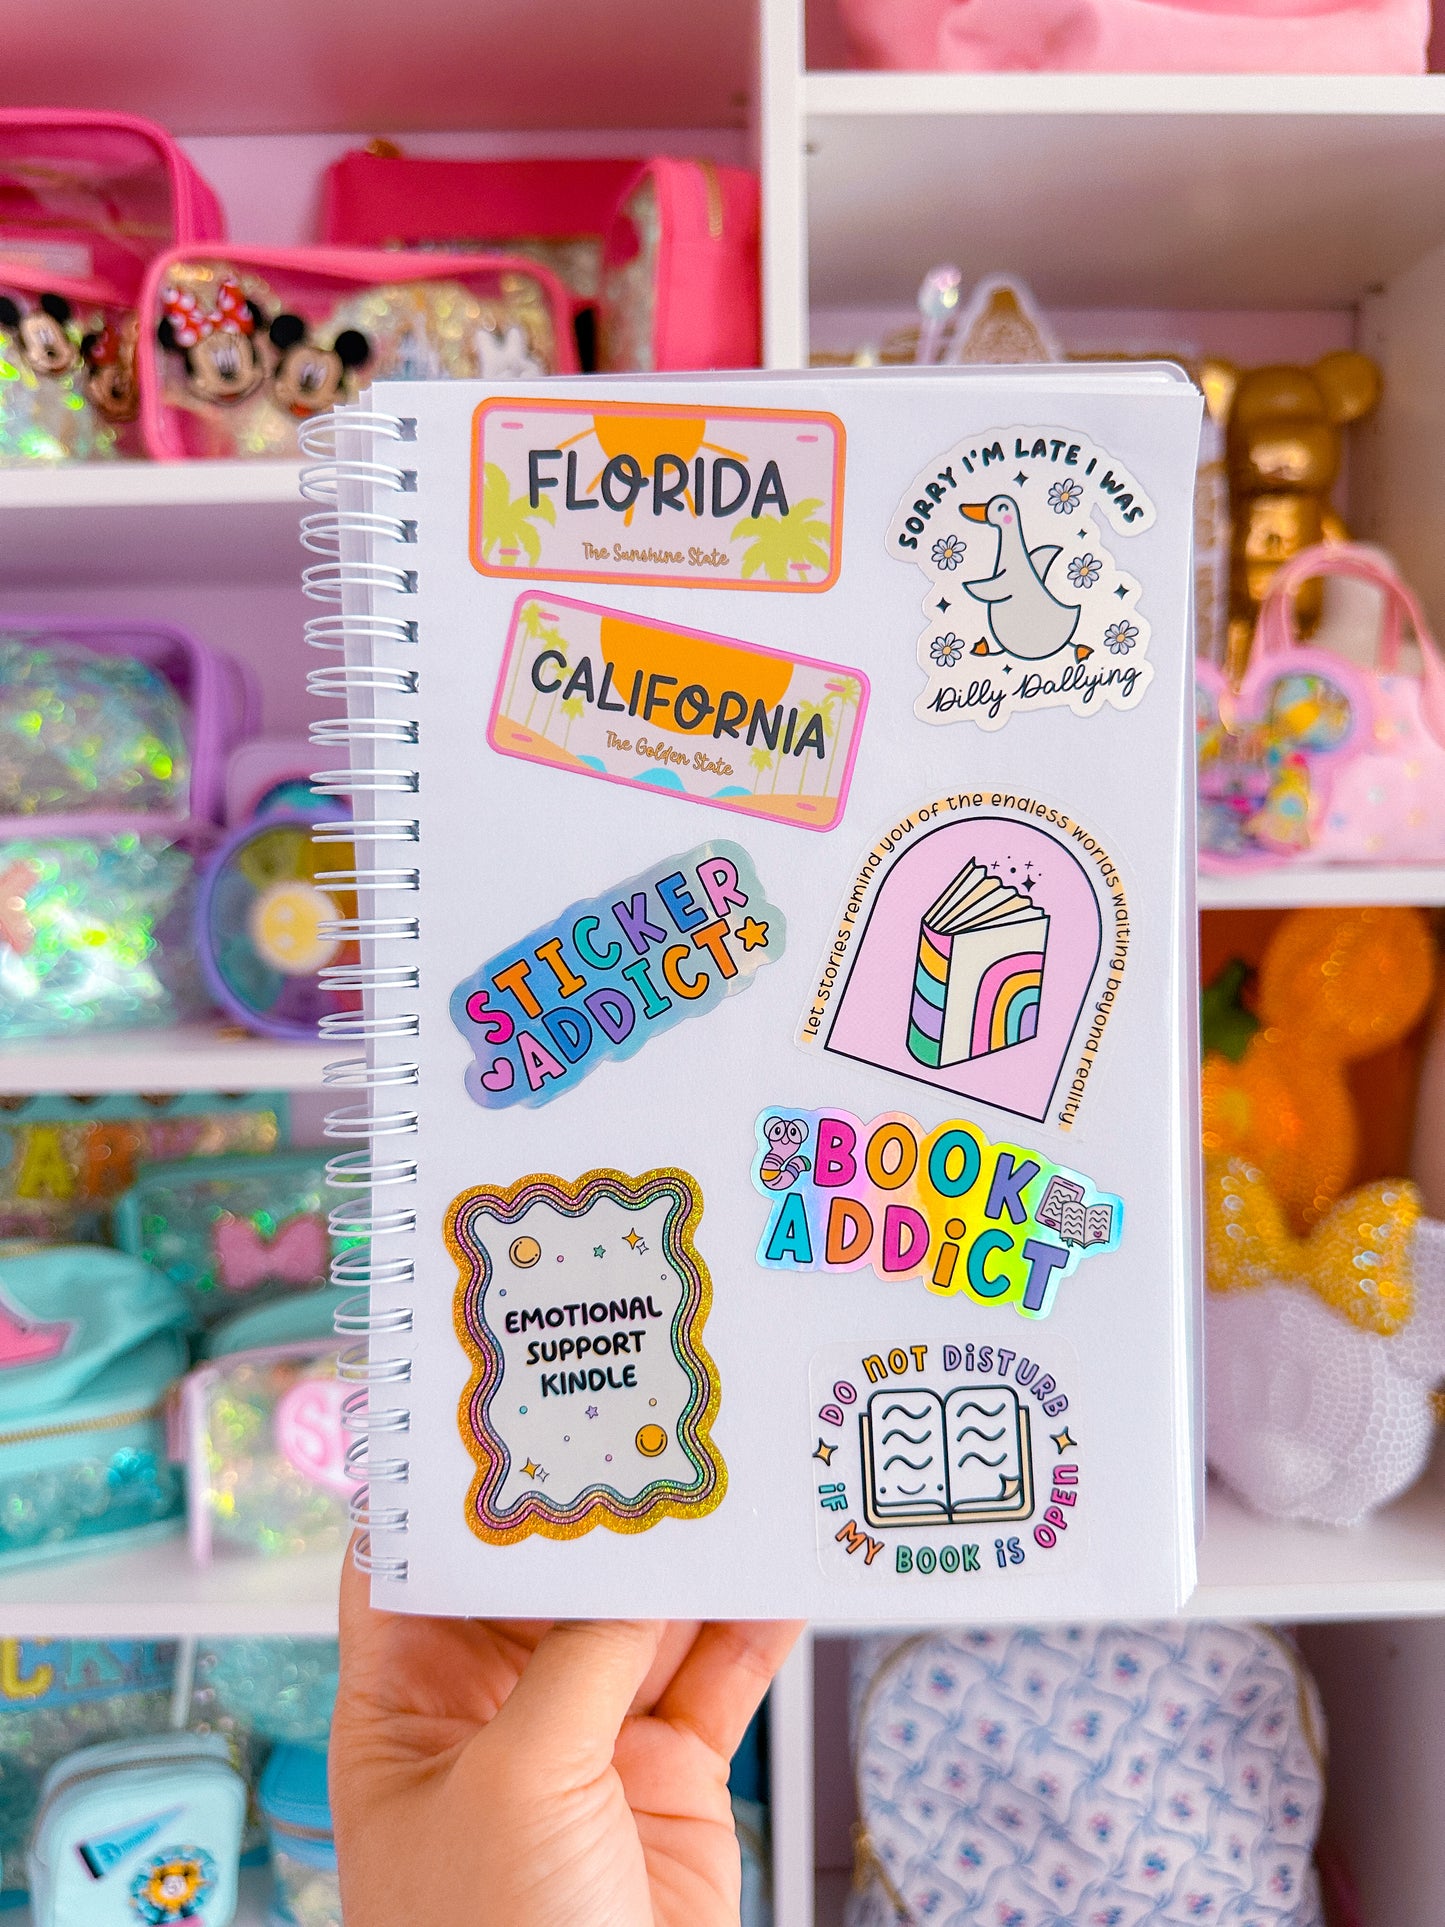 FLORIDA
The Sunshine State
SORRY I'M LATE I WAS
Dilly Dallying
CALIFORNIA
The Golden State
STICKER
ADDICT
Let stories remind you of the endless worlds waiting beyond reality.
BOOK
ADDiCT
EMOTIONAL
SUPPORT
KINDLE
DO NOT DiSTURB
iF MY BOOK iS OPEN